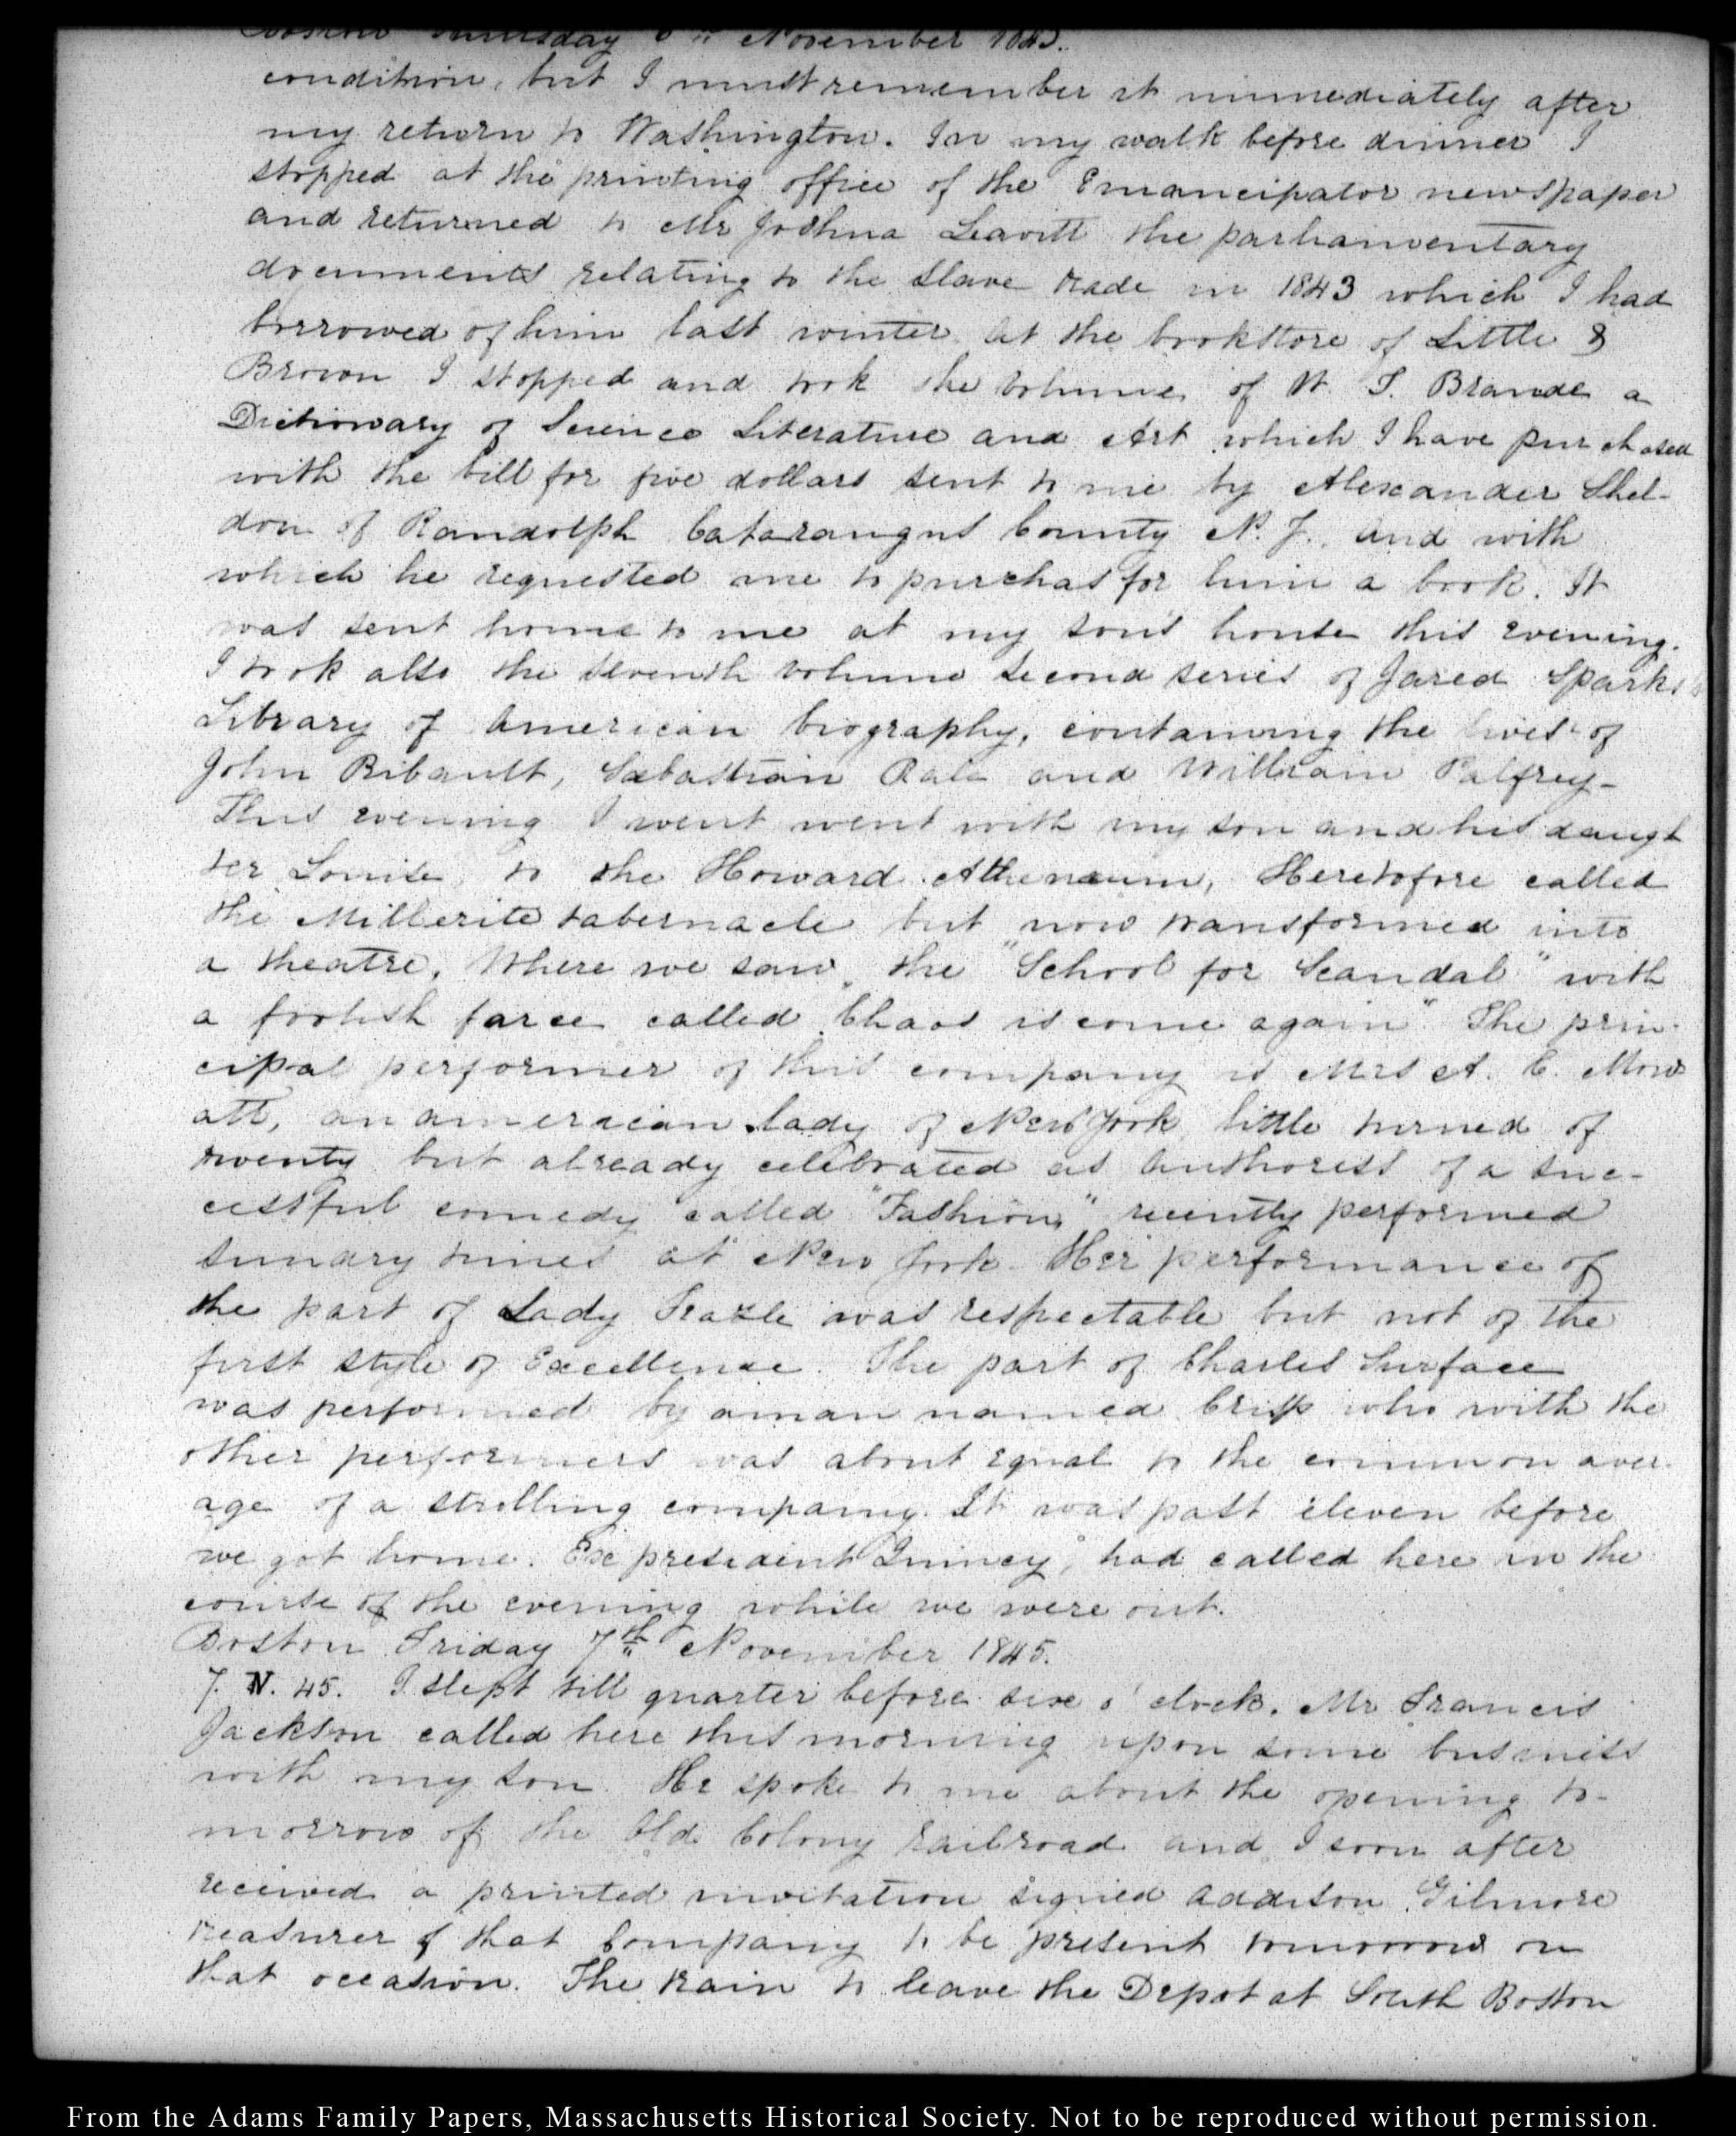 Boston Thursday 6th November 1845.
condition, but I must remember it immediately after
my return to Washington. In my walk before dinner I
stopped at the printing office of the Emancipator newspaper
and returned to Mr Joshua Leavitt the parliamentary
documents relating to the Slave trade in 1843 which I had
borrowed of him last winter. At the bookstore of Little &
Brown I stopped and took the volume of W. T. Brande a
Dictionary of Science Literature and Art which I have purchased
with the bill for five dollars sent to me by Alexander Shel-
don of Randolph Cataraugus County N.J. and with
which he requested me to purchas for him a book. It
was sent home to me at my sons house this evening.
I took also the seventh volume second series of Jared Sparks's
Library of American biography, containing the lives of
John Ribault, Sebastian Rale and William Palfrey-
This evening I went went with my son and his daugh
ter Louisa, to the Howard Athenaeum, Heretofore called
the Millerite tabernacle but now transformed into
a theatre. Where we saw the "School for Scandal" with
a foolish farce called "Chaos is come again" The prin-
cipal performer of this company is Mrs A. C. Mow
att, an american lady of New York little turned of
twenty but already celebrated as authoress of a suc-
cessful comedy called "Fashion," recently performed
sundry times at New York. Her performance of
the part of Lady Teazle was respectable but not of the
first style of Excellence. The part of Charles Surface
was performed by a man named Crisp who with the
other performers was about equal to the common aver-
age of a strolling company. It was past eleven before
we got home. Ex president Quincy, had called here in the
course of the evening while we were out.
Boston Friday 7th November 1845.
7. N. 45. I slept till quarter before six o'clock. Mr Francis
Jackson called here this morning upon some business
with my son. He spoke to me about the opening to-
morrow of the Old Colony railroad and I soon after
received a printed invitation signed Addison Gilmore
treasurer of that Company to be present tomorrow on
that occasion. The train to leave the Depot at South Boston
From the Adams Family Papers, Massachusetts Historical Society. Not to be reproduced without permission.